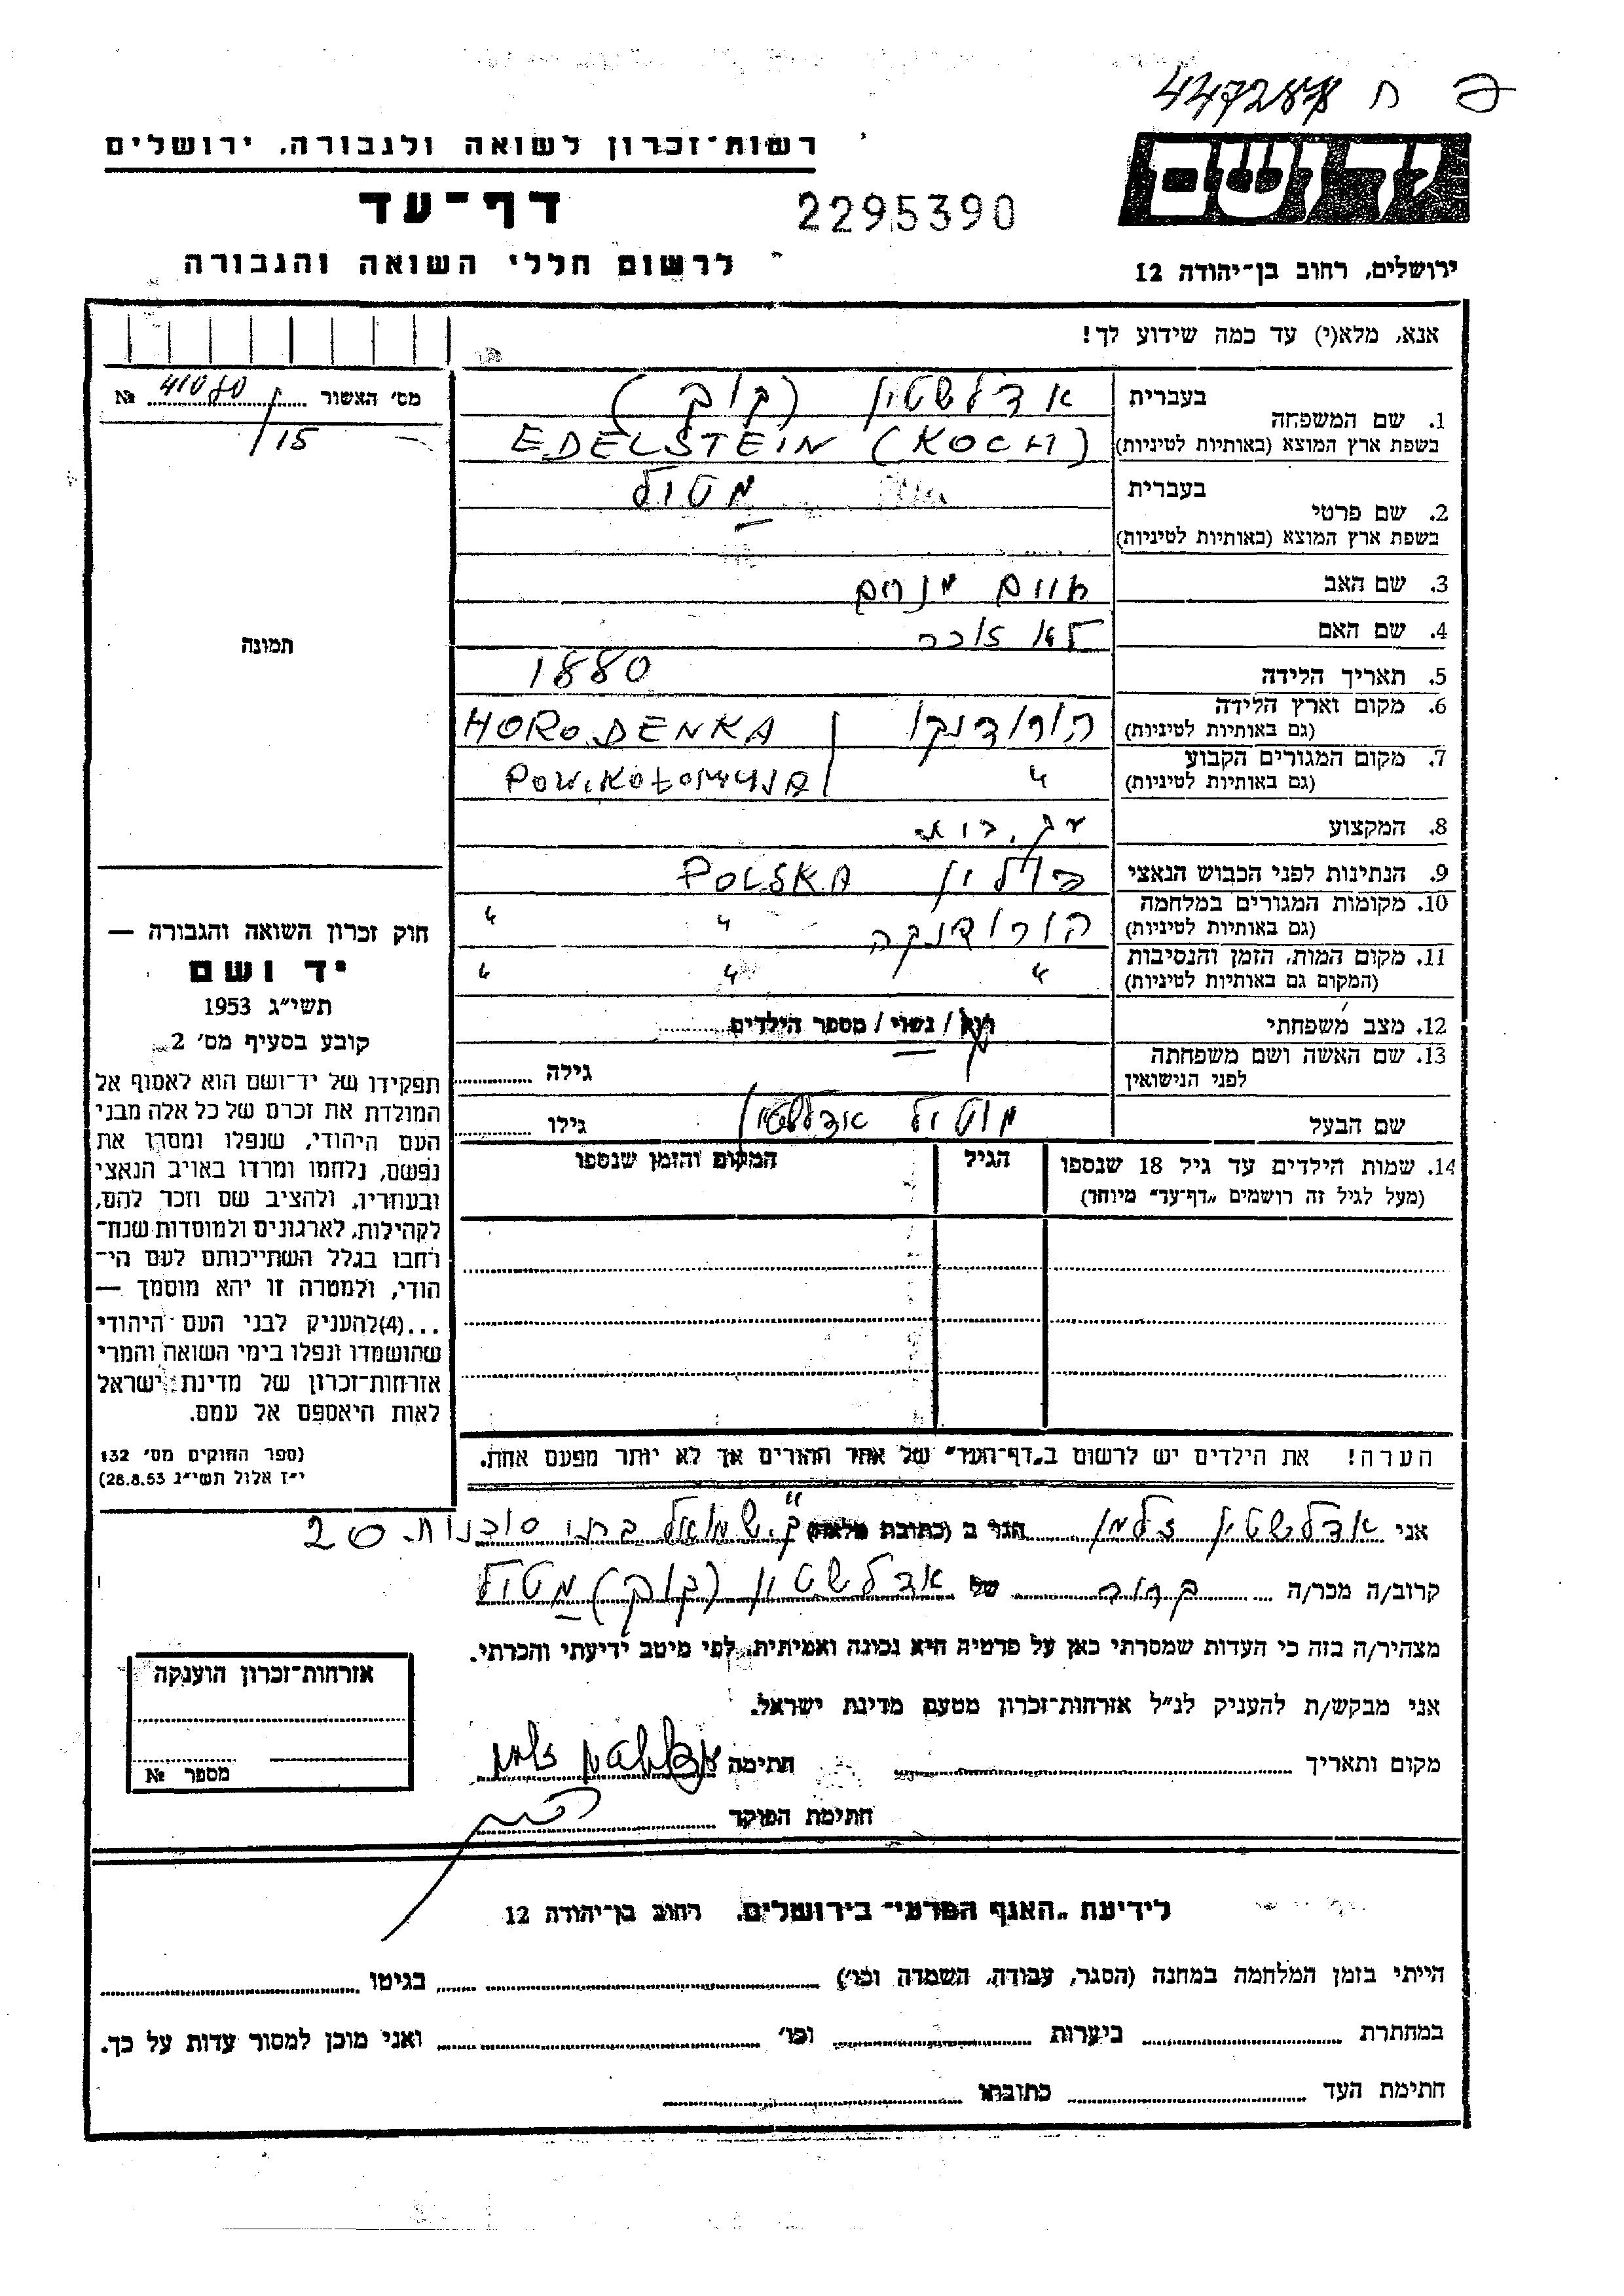 447287 ח פ
רשות־זכרון לשואה ולגבורה, ירושלים
יד ושם
דף־עד
2295390
לרשום חללי השואה והגבורה
ירושלים, רחוב בן־יהודה 12
אנא, מלא(י) עד כמה שידוע לך!
מס׳ האשור 41080 №
/15
תמונה
1. שם המשפחה
בעברית אדלשטין (קוך)
בשפת ארץ המוצא (באותיות לטיניות) EDELSTEIN (KOCH)
2. שם פרטי
בעברית מטיל
בשפת ארץ המוצא (באותיות לטיניות)
3. שם האב חיים מנחם
4. שם האם לאה
5. תאריך הלידה 1880
6. מקום וארץ הלידה
(גם באותיות לטיניות) הורודנקו / HORODENKA
7. מקום המגורים הקבוע
(גם באותיות לטיניות) " / POW.KOŁOMYJA
8. המקצוע עק. בית
9. הנתינות לפני הכבוש הנאצי פולין POLSKA
10. מקומות המגורים במלחמה
(גם באותיות לטיניות) הורודנקה " "
11. מקום המות, הזמן והנסיבות
(המקום גם באותיות לטיניות) " " "
12. מצב משפחתי רוק / נשוי / מספר הילדים
13. שם האשה ושם משפחתה
לפני הנישואין גילה
שם הבעל אדלשטין גילו
14. שמות הילדים עד גיל 18 שנספו
(מעל לגיל זה רושמים „דף־עד״ מיוחד)
הגיל
המקום והזמן שנספו
הערה! את הילדים יש לרשום ב„דף־העד״ של אחד ההורים אך לא יותר מפעם אחת.
חוק זכרון השואה והגבורה —
יד ושם
תשי״ג 1953
קובע בסעיף מס׳ 2
תפקידו של יד־ושם הוא לאסוף אל
המולדת את זכרם של כל אלה מבני
העם היהודי, שנפלו ומסרו את
נפשם, נלחמו ומרדו באויב הנאצי
ובעוזריו, ולהציב שם וזכר להם,
לקהילות, לארגונים ולמוסדות שנח־
רבו בגלל השתייכותם לעם הי־
הודי, ולמטרה זו יהא מוסמך —
...(4)להעניק לבני העם היהודי
שהושמדו ונפלו בימי השואה והמרי
אזרחות־זכרון של מדינת ישראל
לאות היאספם אל עמם.
(ספר החוקים מס׳ 132
י״ז אלול תשי״ג 28.8.53)
אני אדלשטין זלמן הגר ב (כתובת מלאה) ק. שמואל 20
קרוב/ה מכר/ה קרוב של אדלשטין (קוך) מטיל
מצהיר/ה בזה כי העדות שמסרתי כאן על פרטיה היא נכונה ואמיתית, לפי מיטב ידיעתי והכרתי.
אני מבקש/ת להעניק לנ״ל אזרחות־זכרון מטעם מדינת ישראל.
מקום ותאריך חתימה אדלשטין זלמן
חתימת הפוקד
אזרחות־זכרון הוענקה
מספר №
לידיעת „האגף המדעי״ בירושלים, רחוב בן־יהודה 12
הייתי בזמן המלחמה במחנה (הסגר, עבודה, השמדה וכו׳) בגיטו
במחתרת ביערות וכו׳ ואני מוכן למסור עדות על כך.
חתימת העד כתובתו